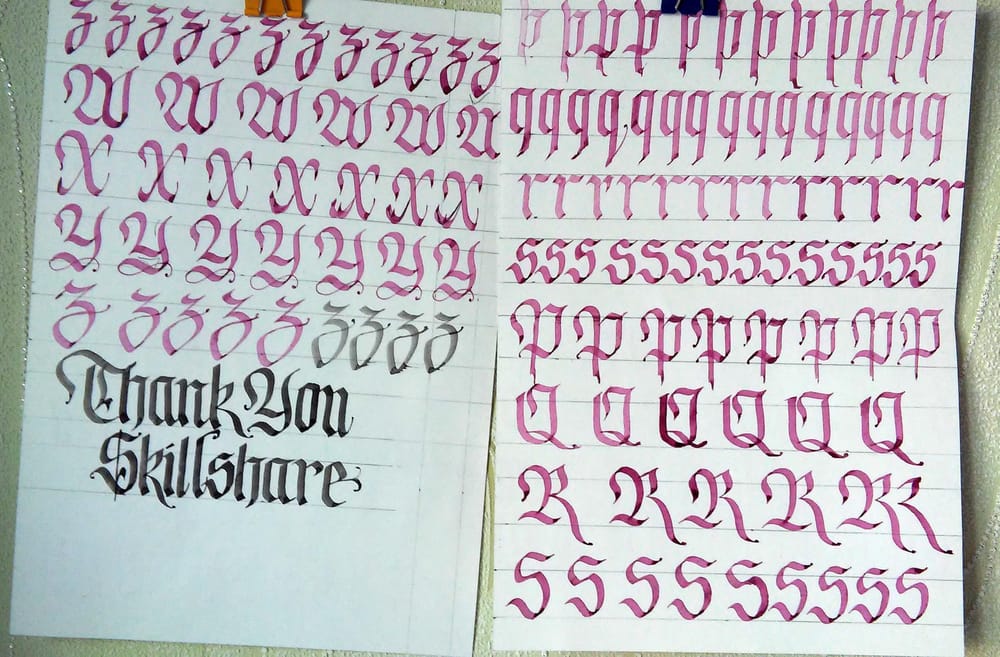 z z z z z z z z z z z z
W W W W W W
X X X X X X X
Y Y Y Y Y Y Y
Z Z Z Z Z Z Z Z Z
Thank You
Skillshare
p p p p p p p p p p p p
q q q q q q q q q q q q q q q
r r r r r r r r r r r r r r r
s s s s s s s s s s s s s s
P P P P P P P P
Q Q Q Q Q Q
R R R R R R
S S S S S S S S S